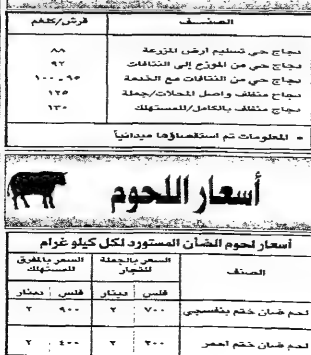 الصنف قرش/كلغم
دجاج حي تسليم ارض المزرعة ٨٨
دجاج حي من الموزع إلى النتافات ٩٢
دجاج حي من النتافات مع الخدمة ٩٥-١٠٠
دجاج منظف واصل المحلات/جملة ١٢٥
دجاج منظف بالكامل/للمستهلك ١٣٠
• المعلومات تم استقصاؤها ميدانياً
أسعار اللحوم
أسعار لحوم الضأن المستورد لكل كيلو غرام
الصنف السعر بالجملة للتجار السعر بالمفرق للمستهلك
فلس دينار فلس دينار
لحم ضان ختم بنفسجي ٧٠٠ ٢ ٩٠٠ ٢
لحم ضان ختم احمر ٢٠٠ ٢ ٤٠٠ ٢